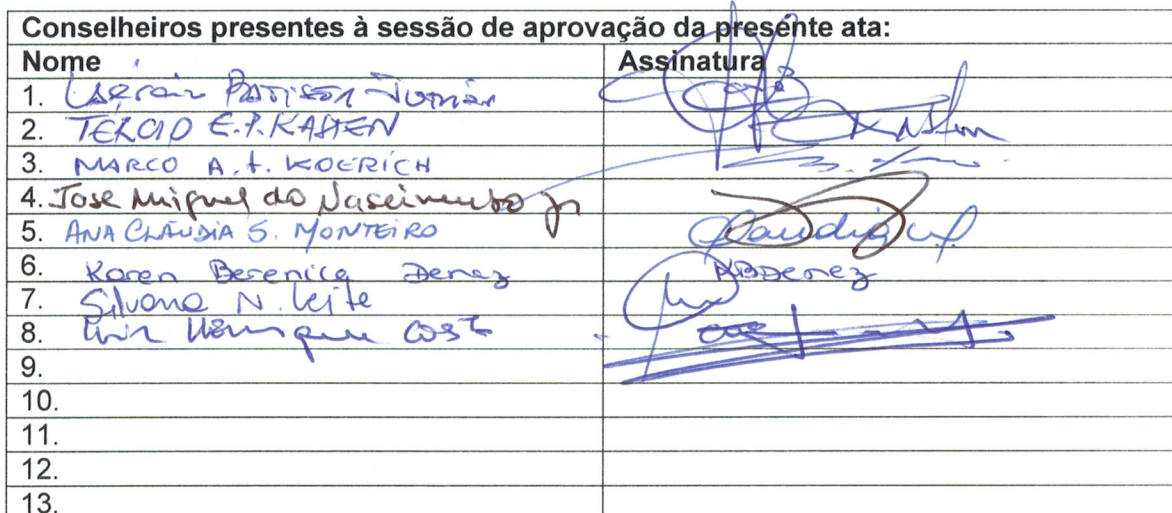 Conselheiros presentes à sessão de aprovação da presente ata:
Nome Assinatura
1. Junior
2. TERCIO E.P. KASTEN
3. MARCO A. A. KOERICH
4. Jose Miguel do Nascimento Jr
5. ANA CLÁUDIA S. MONTEIRO Claudia
6. Karen Berenice Denez KBDenez
7. Silvana N. Leite
8. Luiz Henrique Costa
9.
10.
11.
12.
13.